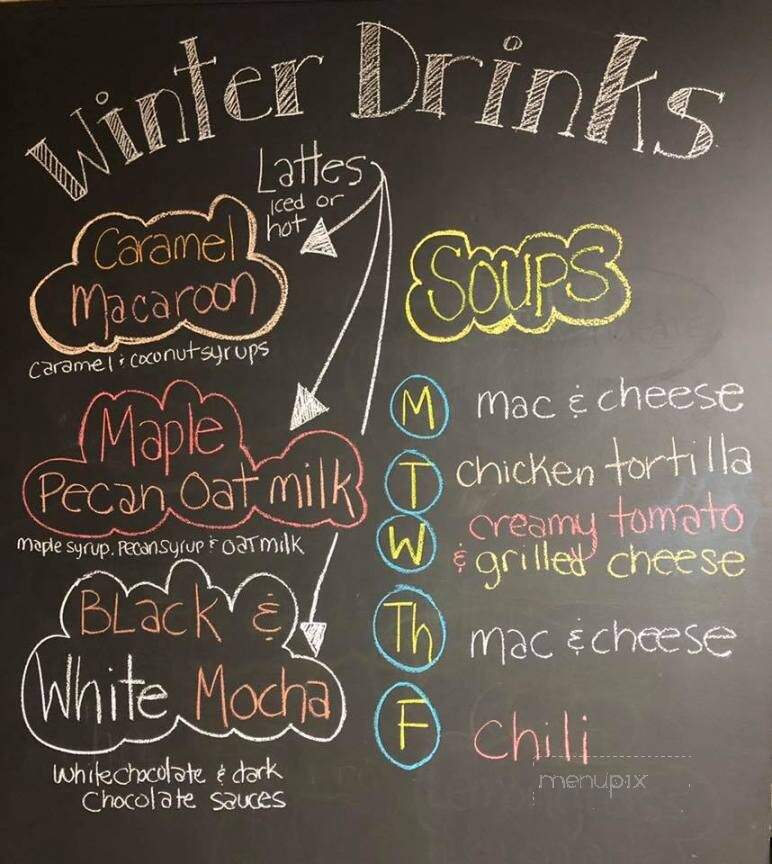 Winter Drinks
Lattes
iced or
hot
Caramel
Macaroon
caramel & coconut syrups
Maple
Pecan Oat milk
maple syrup, pecan syrup & oat milk
Black &
White Mocha
white chocolate & dark
chocolate sauces
Soups
M mac & cheese
T chicken tortilla
W creamy tomato
& grilled cheese
Th mac & cheese
F chili
menupix